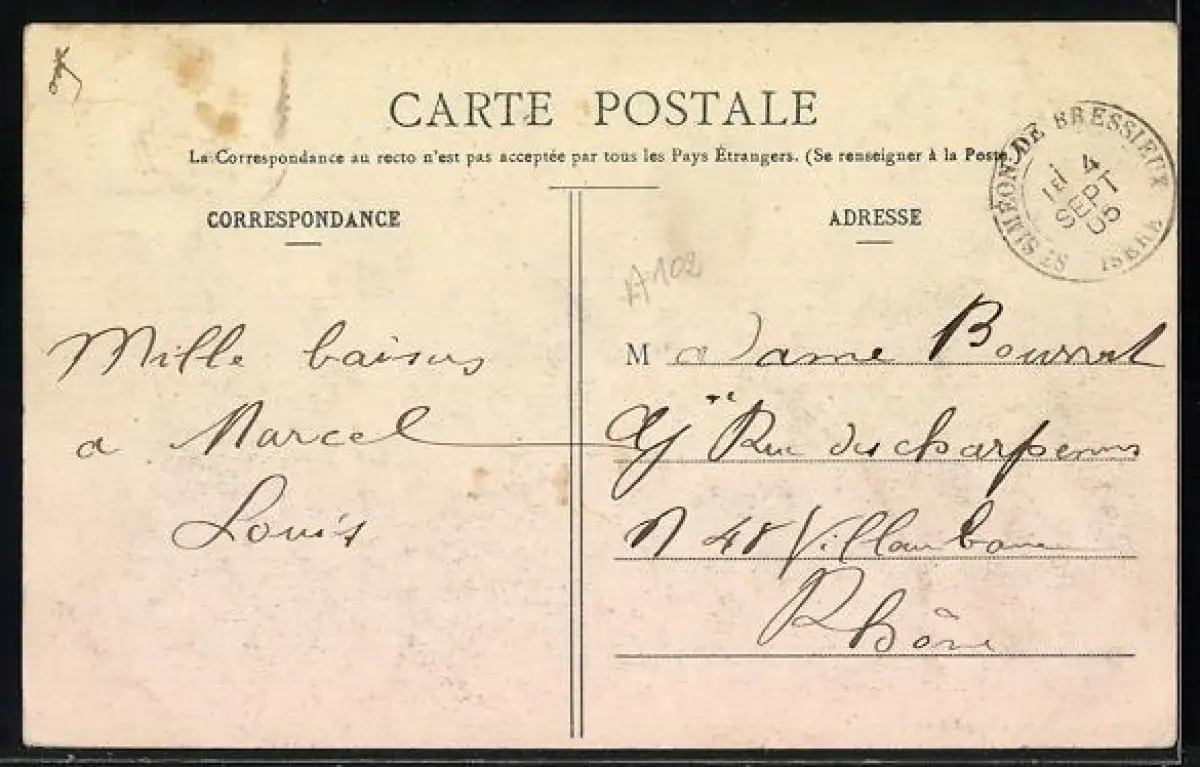 CARTE POSTALE
La Correspondance au recto n'est pas acceptée par tous les Pays Étrangers. (Se renseigner à la Poste.)
CORRESPONDANCE
Mille baisers
a Marcel
Louis
ADRESSE
A102
Madame Bourrat
Rue des charpennes
N 48 Villeurbanne
Rhône
ST SIMÉON DE BRESSIEUX
4
SEPT
05
ISERE